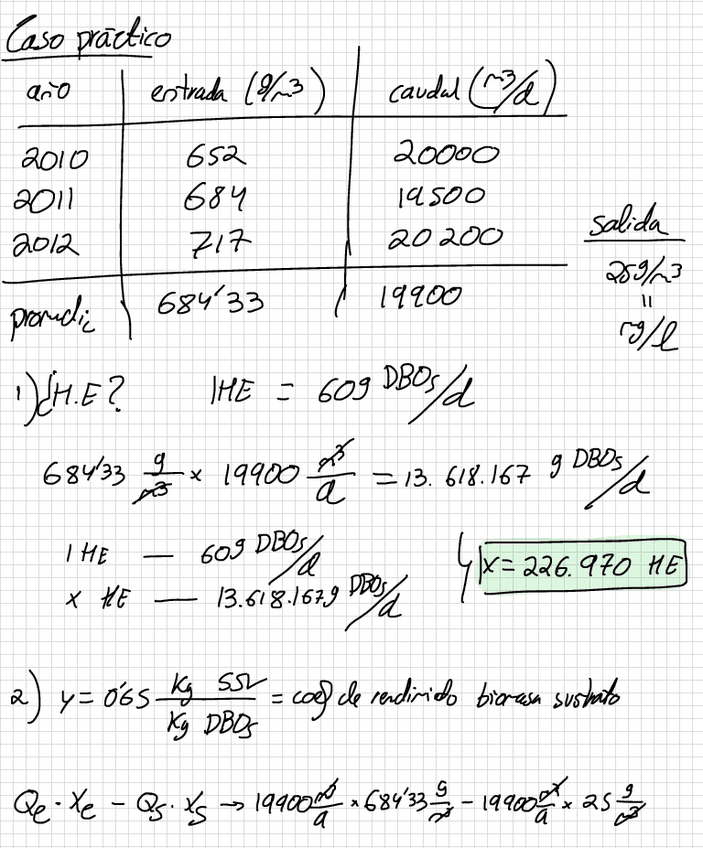 Caso práctico
año entrada (g/m3) caudal (m3/d)
2010 652 20000
2011 684 19500
2012 717 20200
promedio 684'33 19900
salida
25g/m3
=
mg/l
1) ¿H.E? 1HE = 60g DBO5/d
684'33 g/m3 x 19900 m3/d = 13.618.167 g DBO5/d
1 HE — 60g DBO5/d
x HE — 13.618.167g DBO5/d
x = 226.970 HE
2) y = 0'65 Kg SSV / Kg DBO5 = coef de rendimido biomasa sustrato
Qe · Xe - Qs · Xs → 19900 m3/d x 684'33 g/m3 - 19900 m3/d x 25 g/m3